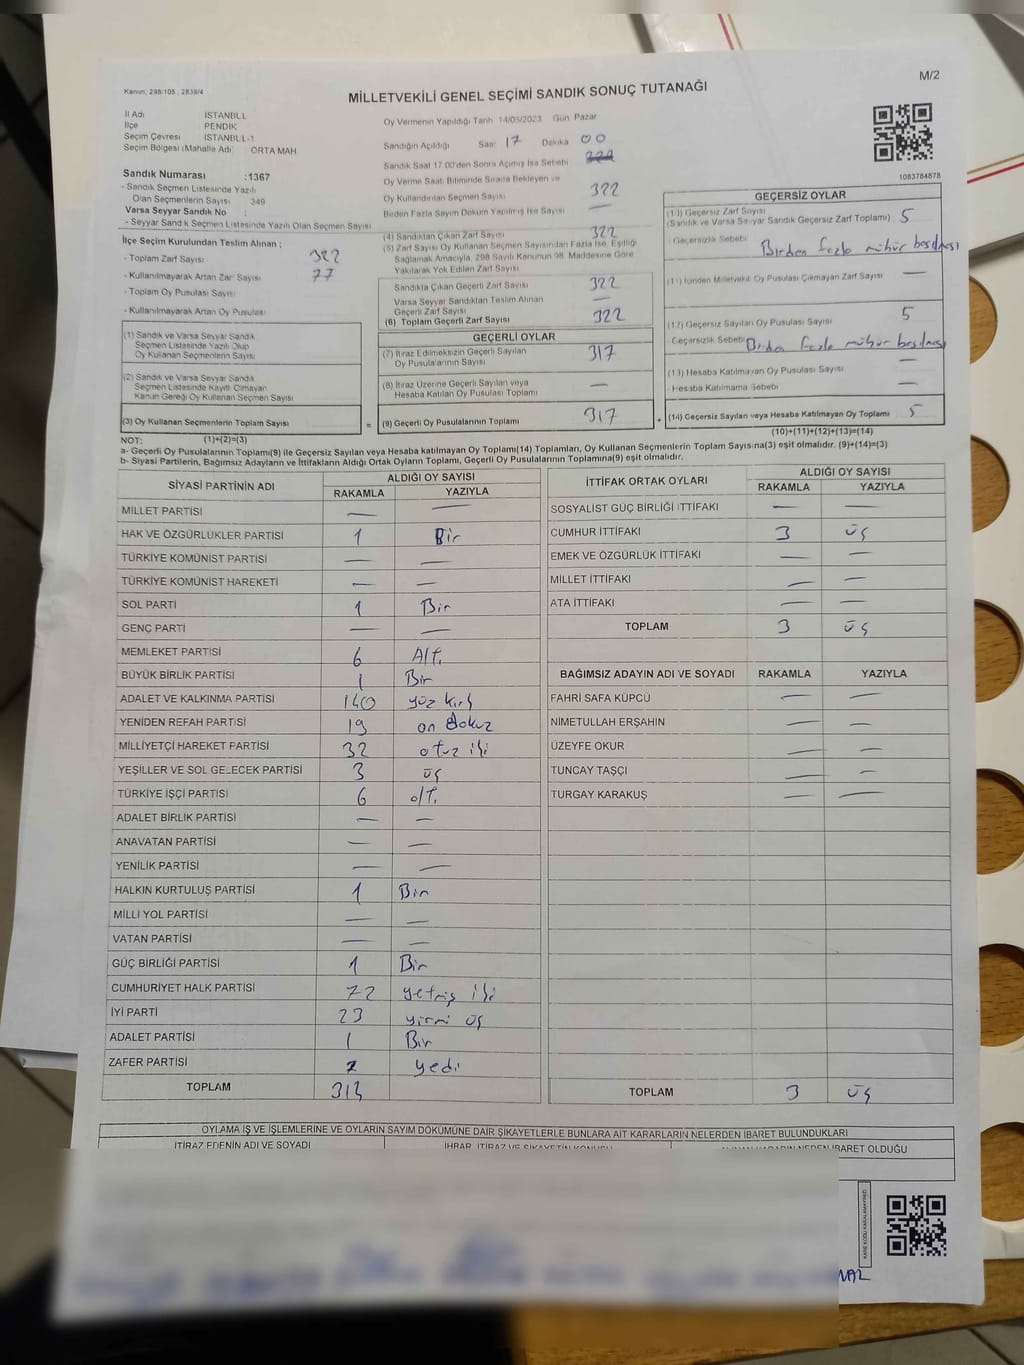 Kanun: 298/105, 2839/4
M/2
MİLLETVEKİLİ GENEL SEÇİMİ SANDIK SONUÇ TUTANAĞI
İl Adı İSTANBUL
İlçe PENDİK
Seçim Çevresi İSTANBUL-1
Seçim Bölgesi (Mahalle Adı) ORTA MAH
Sandık Numarası :1367
- Sandık Seçmen Listesinde Yazılı
Olan Seçmenlerin Sayısı 349
Varsa Seyyar Sandık No :
- Seyyar Sandık Seçmen Listesinde Yazılı Olan Seçmen Sayısı
İlçe Seçim Kurulundan Teslim Alınan ;
- Toplam Zarf Sayısı 322
- Kullanılmayarak Artan Zarf Sayısı 77
- Toplam Oy Pusulası Sayısı
- Kullanılmayarak Artan Oy Pusulası
(1) Sandık ve Varsa Seyyar Sandık
Seçmen Listesinde Yazılı Olup
Oy Kullanan Seçmenlerin Sayısı
(2) Sandık ve Varsa Seyyar Sandık
Seçmen Listesinde Kayıtlı Olmayan
Kanun Gereği Oy Kullanan Seçmen Sayısı
(3) Oy Kullanan Seçmenlerin Toplam Sayısı
(1)+(2)=(3)
Oy Vermenin Yapıldığı Tarih 14/05/2023 Gün Pazar
Sandığın Açıldığı Saat 17 Dakika 00
Sandık Saat 17:00'den Sonra Açılmış İse Sebebi
Oy Verme Saati Bitiminde Sırada Bekleyen ve
Oy Kullandırılan Seçmen Sayısı 322
Birden Fazla Sayım Döküm Yapılmış İse Sayısı —
(4) Sandıktan Çıkan Zarf Sayısı 322
(5) Zarf Sayısı Oy Kullanan Seçmen Sayısından Fazla İse, Eşitliği
Sağlamak Amacıyla, 298 Sayılı Kanunun 98. Maddesine Göre
Yakılarak Yok Edilen Zarf Sayısı
Sandıkta Çıkan Geçerli Zarf Sayısı 322
Varsa Seyyar Sandıktan Teslim Alınan
Geçerli Zarf Sayısı —
(6) Toplam Geçerli Zarf Sayısı 322
GEÇERLİ OYLAR
(7) İtiraz Edilmeksizin Geçerli Sayılan
Oy Pusulalarının Sayısı 317
(8) İtiraz Üzerine Geçerli Sayılan veya
Hesaba Katılan Oy Pusulası Toplamı —
= (9) Geçerli Oy Pusulalarının Toplamı 317
1083784878
GEÇERSİZ OYLAR
(10) Geçersiz Zarf Sayısı
(Sandık ve Varsa Seyyar Sandık Geçersiz Zarf Toplamı) 5
- Geçersizlik Sebebi Birden fazla mühür basılması
(11) İçinden Milletvekili Oy Pusulası Çıkmayan Zarf Sayısı —
(12) Geçersiz Sayılan Oy Pusulası Sayısı 5
Geçersizlik Sebebi Birden fazla mühür basılması
(13) Hesaba Katılmayan Oy Pusulası Sayısı —
- Hesaba Katılmama Sebebi —
+ (14) Geçersiz Sayılan veya Hesaba Katılmayan Oy Toplamı 5
(10)+(11)+(12)+(13)=(14)
NOT:
a- Geçerli Oy Pusulalarının Toplamı(9) ile Geçersiz Sayılan veya Hesaba katılmayan Oy Toplamı(14) Toplamları, Oy Kullanan Seçmenlerin Toplam Sayısına(3) eşit olmalıdır. (9)+(14)=(3)
b- Siyasi Partilerin, Bağımsız Adayların ve İttifakların Aldığı Ortak Oyların Toplamı, Geçerli Oy Pusulalarının Toplamına(9) eşit olmalıdır.
SİYASİ PARTİNİN ADI ALDIĞI OY SAYISI
RAKAMLA YAZIYLA
MİLLET PARTİSİ — —
HAK VE ÖZGÜRLÜKLER PARTİSİ 1 Bir
TÜRKİYE KOMÜNİST PARTİSİ — —
TÜRKİYE KOMÜNİST HAREKETİ — —
SOL PARTİ 1 Bir
GENÇ PARTİ — —
MEMLEKET PARTİSİ 6 Altı
BÜYÜK BİRLİK PARTİSİ 1 Bir
ADALET VE KALKINMA PARTİSİ 140 yüz kırk
YENİDEN REFAH PARTİSİ 19 on dokuz
MİLLİYETÇİ HAREKET PARTİSİ 32 otuz iki
YEŞİLLER VE SOL GELECEK PARTİSİ 3 üç
TÜRKİYE İŞÇİ PARTİSİ 6 altı
ADALET BİRLİK PARTİSİ — —
ANAVATAN PARTİSİ — —
YENİLİK PARTİSİ — —
HALKIN KURTULUŞ PARTİSİ 1 Bir
MİLLİ YOL PARTİSİ — —
VATAN PARTİSİ — —
GÜÇ BİRLİĞİ PARTİSİ 1 Bir
CUMHURİYET HALK PARTİSİ 72 yetmiş iki
İYİ PARTİ 23 yirmi üç
ADALET PARTİSİ 1 Bir
ZAFER PARTİSİ 7 yedi
TOPLAM
İTTİFAK ORTAK OYLARI ALDIĞI OY SAYISI
RAKAMLA YAZIYLA
SOSYALİST GÜÇ BİRLİĞİ İTTİFAKI — —
CUMHUR İTTİFAKI 3 üç
EMEK VE ÖZGÜRLÜK İTTİFAKI — —
MİLLET İTTİFAKI — —
ATA İTTİFAKI — —
TOPLAM 3 üç
BAĞIMSIZ ADAYIN ADI VE SOYADI RAKAMLA YAZIYLA
FAHRİ SAFA KÜPCÜ — —
NİMETULLAH ERŞAHIN — —
ÜZEYFE OKUR — —
TUNCAY TAŞÇI — —
TURGAY KARAKUŞ — —
TOPLAM 3 üç
OYLAMA İŞ VE İŞLEMLERİNE VE OYLARIN SAYIM DÖKÜMÜNE DAİR ŞİKAYETLERLE BUNLARA AİT KARARLARIN NELERDEN İBARET BULUNDUKLARI
İTİRAZ EDENİN ADI VE SOYADI
İBARET OLDUĞU